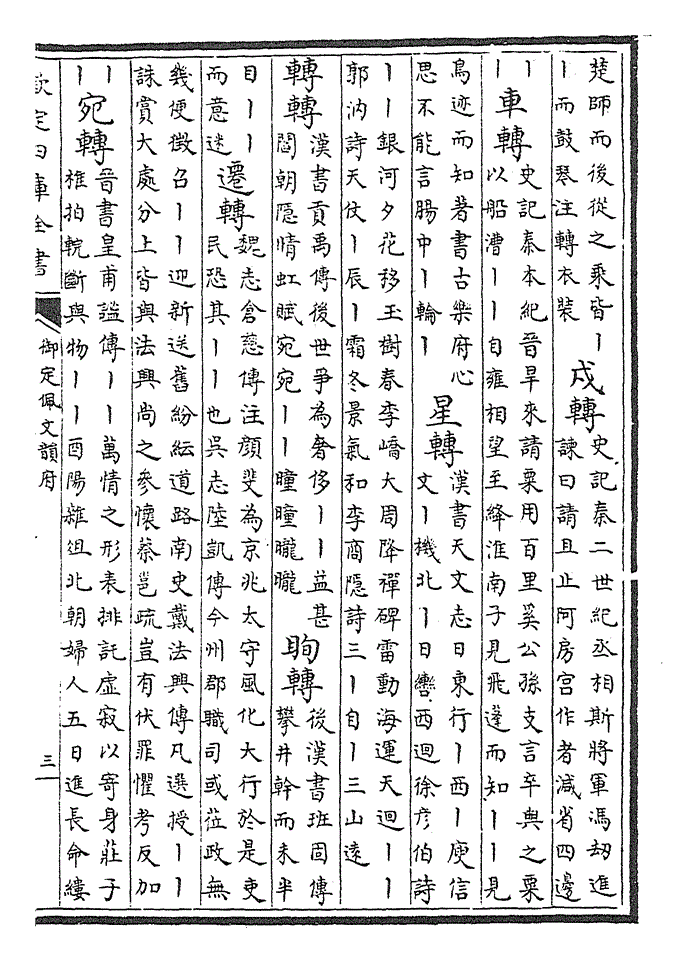 楚師而後從之乘皆丨
丨而鼓琴注轉衣裝
戍轉
史記秦二世紀丞相斯將軍馮刼進
諫曰請且止阿房宫作者減省四邊
丨
丨
車轉
史記秦本紀晉旱來請粟用百里奚公孫支言卒與之粟
以船漕丨丨自雍相望至絳淮南子見飛蓬而知丨丨見
鳥迹而知著書古樂府心
思不能言腸中丨輪丨
星轉
漢書天文志日東行丨西丨庾信
文丨機北丨日轡西迴徐彦伯詩
丨丨銀河夕花移玉樹春李嶠大周降禪碑雷動海運天迴丨丨
郭汭詩天仗丨辰丨霜冬景氣和李商隠詩三丨自丨三山逺
轉轉
漢書貢禹傳後世爭為奢侈丨丨益甚
閻朝隠情虹賦宛宛丨丨曈曈朧朧
眴轉
後漢書班固傳
攀井幹而未半
目丨丨
而意迷
遷轉
魏志倉慈傳注顔斐為京兆太守風化大行於是吏
民恐其丨丨也吳志陸凱傳今州郡職司或莅政無
幾便徵召丨丨迎新送舊紛紜道路南史戴法興傳凡選授丨丨
誅賞大處分上皆與法興尚之參懷蔡邕疏豈有伏罪懼考反加
丨
丨
宛轉
晉書皇甫謐傳丨丨萬情之形表排託虚寂以寄身莊子
椎拍輐斷與物丨丨酉陽雜俎北朝婦人五日進長命縷
欽定四庫全書
御定佩文韻府
三